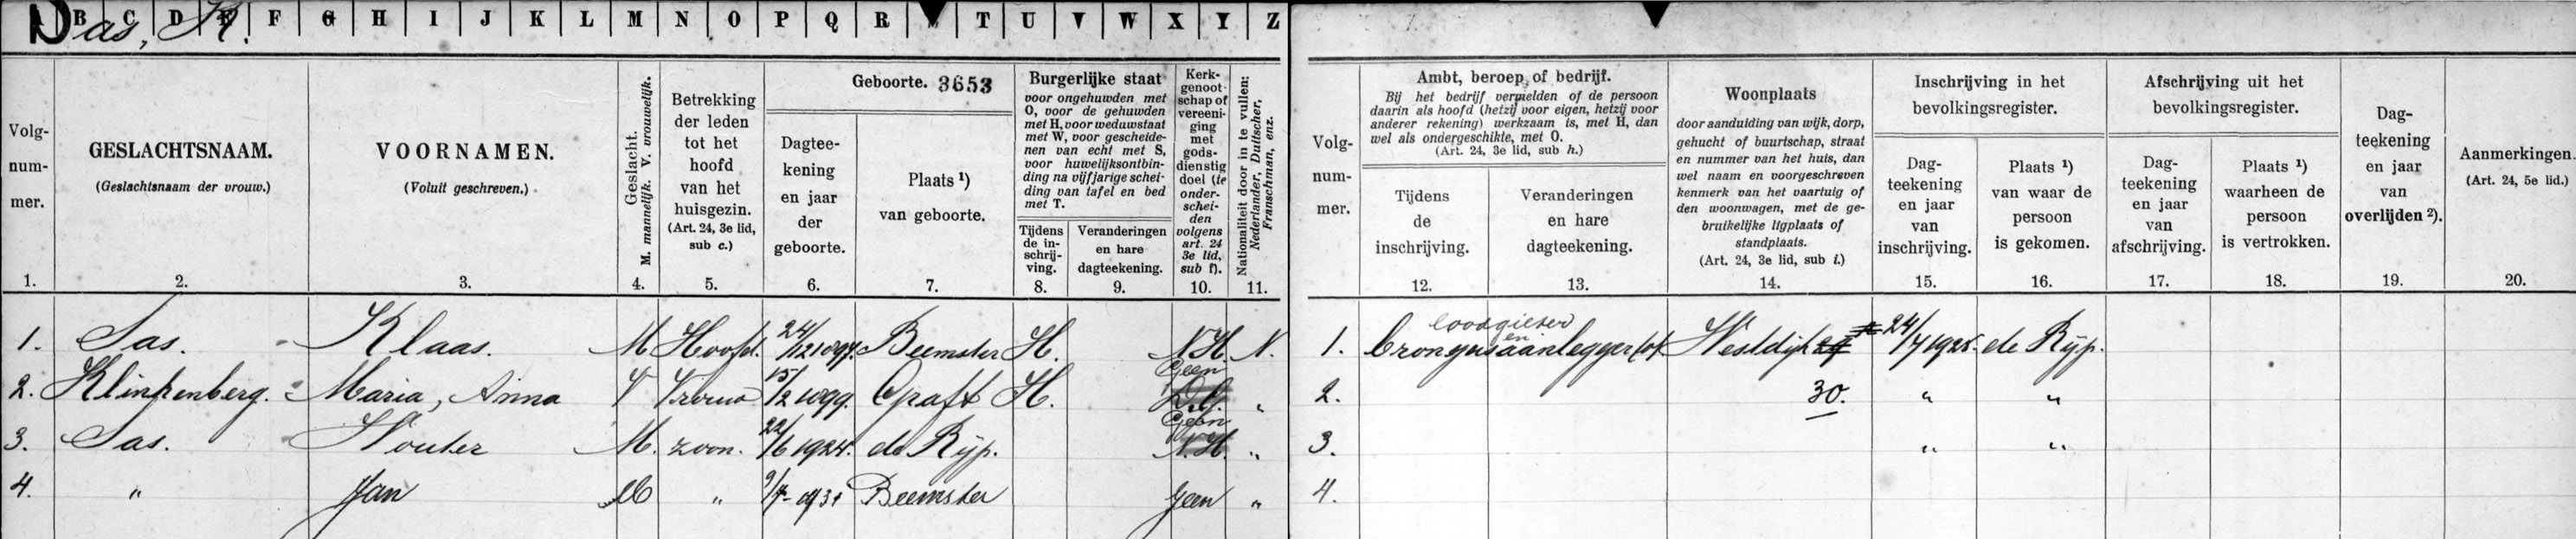 Das, K.
B C D E F G H I J K L M N O P Q R T U V W X Y Z
Volg-
num-
mer.
GESLACHTSNAAM.
(Geslachtsnaam der vrouw.)
VOORNAMEN.
(Voluit geschreven.)
Geslacht.
M. mannelijk. V. vrouwelijk.
Betrekking
der leden
tot het
hoofd
van het
huisgezin.
(Art. 24, 3e lid,
sub c.)
Geboorte. 3653
Dagtee-
kening
en jaar
der
geboorte.
Plaats ¹)
van geboorte.
Burgerlijke staat
voor ongehuwden met
O, voor de gehuwden
met H, voor weduwstaat
met W, voor gescheide-
nen van echt met S,
voor huwelijksontbin-
ding na vijfjarige schei-
ding van tafel en bed
met T.
Tijdens
de in-
schrij-
ving.
Veranderingen
en hare
dagteekening.
Kerk-
genoot-
schap of
vereeni-
ging
met
gods-
dienstig
doel (te
onder-
schei-
den
volgens
art. 24
3e lid,
sub f).
Nationaliteit door in te vullen:
Nederlander, Duitscher,
Franschman, enz.
1. 2. 3. 4. 5. 6. 7. 8. 9. 10. 11.
1. Sas. Klaas. M Hoofd. 24/12 1897. Beemster H. N.H. N.
Geen
2. Klinkenberg. Maria, Anna V Vrouw 15/2 1899. Graft H. D.G. "
Geen
3. Sas. Wouter M. zoon. 22/6 1924. de Rijp. N.H. "
4. " Jan M " 9/7-1931 Beemster geen "
Volg-
num-
mer.
Ambt, beroep of bedrijf.
Bij het bedrijf vermelden of de persoon
daarin als hoofd (hetzij voor eigen, hetzij voor
anderer rekening) werkzaam is, met H, dan
wel als ondergeschikte, met O.
(Art. 24, 3e lid, sub h.)
Tijdens
de
inschrijving.
Veranderingen
en hare
dagteekening.
Woonplaats
door aanduiding van wijk, dorp,
gehucht of buurtschap, straat
en nummer van het huis, dan
wel naam en voorgeschreven
kenmerk van het vaartuig of
den woonwagen, met de ge-
bruikelijke ligplaats of
standplaats.
(Art. 24, 3e lid, sub i.)
Inschrijving in het
bevolkingsregister.
Dag-
teekening
en jaar
van
inschrijving.
Plaats ¹)
van waar de
persoon
is gekomen.
Afschrijving uit het
bevolkingsregister.
Dag-
teekening
en jaar
van
afschrijving.
Plaats ¹)
waarheen de
persoon
is vertrokken.
Dag-
teekening
en jaar
van
overlijden ²).
Aanmerkingen.
(Art. 24, 5e lid.)
12. 13. 14. 15. 16. 17. 18. 19. 20.
loodgieter
en
1. aanlegger Westdijk 24/7 1925. de Rijp.
2. 30. " "
3. " "
4.